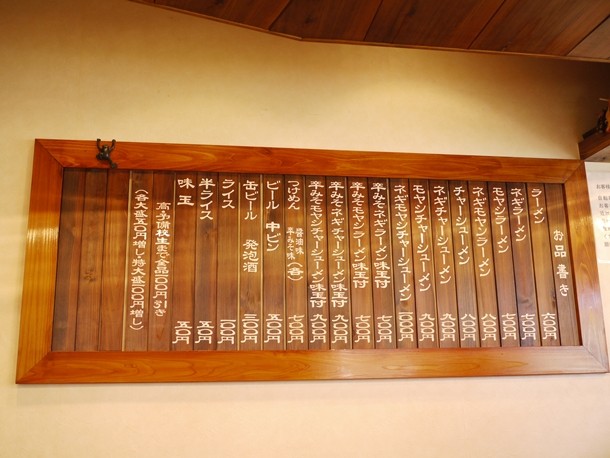 お品書き
ラーメン 六〇〇円
ネギラーメン 七〇〇円
モヤシラーメン 七〇〇円
ネギモヤシラーメン 八〇〇円
チャーシューメン 八〇〇円
ネギチャーシューメン 九〇〇円
モヤシチャーシューメン 九〇〇円
ネギモヤシチャーシューメン 一〇〇〇円
辛みそネギラーメン味玉付 八〇〇円
辛みそモヤシラーメン味玉付 八〇〇円
辛みそネギチャーシューメン味玉付 九〇〇円
辛みそモヤシチャーシューメン味玉付 九〇〇円
つけめん 醤油味 辛みそ味 (各) 七〇〇円
ビール 中ビン 五〇〇円
缶ビール 発泡酒 三〇〇円
ライス 一〇〇円
半ライス 五〇円
味玉 五〇円
高・予備校生まで全品一〇〇円引き
(各大盛五〇円増し・特大盛一〇〇円増し)